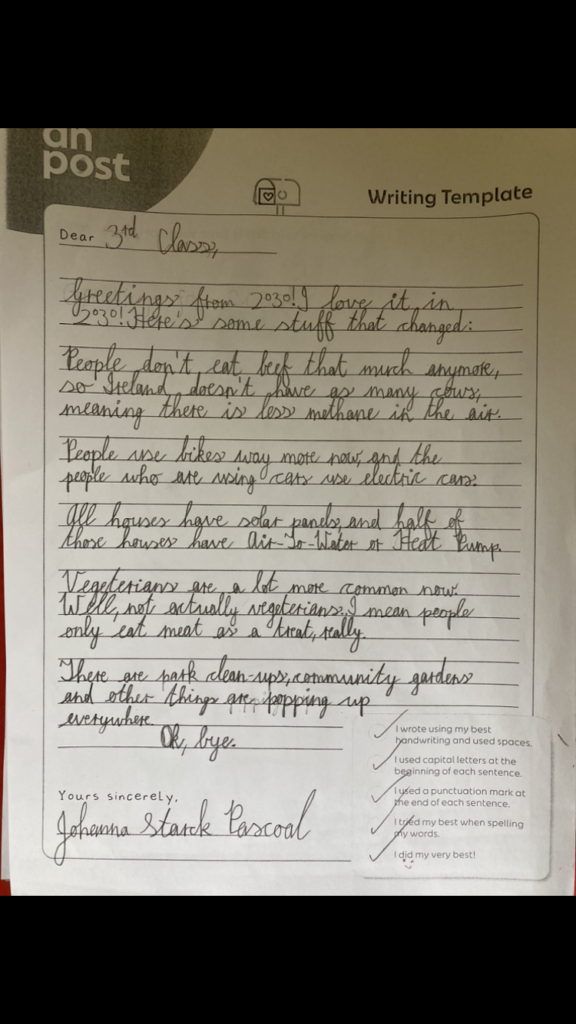 an
post
Writing Template
Dear 3rd Class,
Greetings from 2030! I love it in
2030! Here's some stuff that changed:
People don't eat beef that much anymore,
so Ireland doesn't have as many cows,
meaning there is less methane in the air.
People use bikes way more now, and the
people who are using cars use electric cars.
All houses have solar panels, and half of
those houses have Air-To-Water or Heat Pump.
Vegeterians are a lot more common now.
Well, not actually vegeterians, I mean people
only eat meat as a treat, really.
There are park clean-ups, community gardens
and other things are popping up
everywhere.
Ok, bye.
Yours sincerely,
Johanna Starck Pascoal
I wrote using my best
handwriting and used spaces.
I used capital letters at the
beginning of each sentence.
I used a punctuation mark at
the end of each sentence.
I tried my best when spelling
my words.
I did my very best!